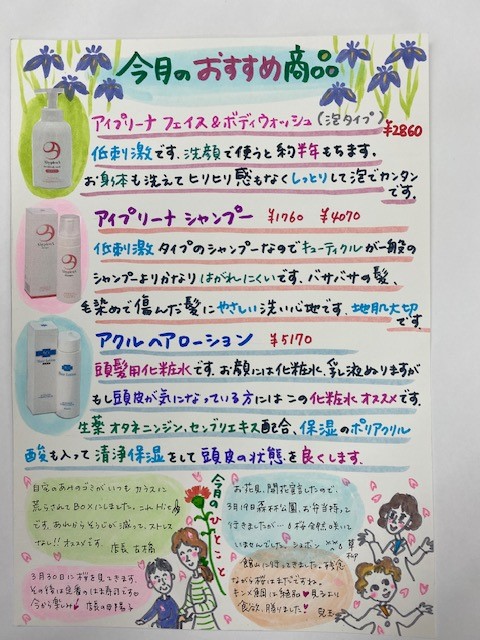 今月のおすすめ商品
アイプリーナ フェイス&ボディウォッシュ(泡タイプ) ¥2860
低刺激です。洗顔で使うと約半年もちます。
お身体も洗えてヒリヒリ感もなくしっとりして泡でカンタン
です。
アイプリーナ シャンプー ¥1760 ¥4070
低刺激タイプのシャンプーなのでキューティクルが一般の
シャンプーよりかなりはがれにくいです。バサバサの髪、
毛染めで傷んだ髪にやさしい洗い心地です。地肌大切
です。
アクルヘアローション ¥5170
頭髪用化粧水です。お顔には化粧水、乳液ぬりますが
もし頭皮が気になっている方にはこの化粧水オススメです。
生薬オタネニンジン、センブリエキス配合、保湿のポリアクリル
酸も入って清浄保湿をして頭皮の状態を良くします。
今月のひとこと
自宅のあみのゴミがいつもカラスに
荒らされてBOXにしました。これHit
です。あれからそうじが減って、ストレス
なし!! オススメです。 店長 古橋
3月30日に桜を見てきます。
その後は定番のはま寿司です。
今から楽しみ
お花見、開花宣言したので、
3月19日森林公園、お弁当持って
行きましたが… 桜全然咲いて
いませんでした。ションボリ
館山に行ってきました。
ながら桜はまだですね。
キンメ鯛は絶品♥見るより
食欲、勝りました! 児玉